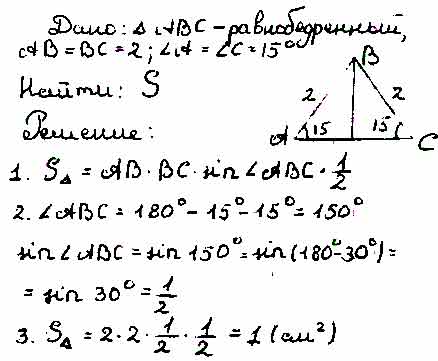 Дано: Δ ABC - равнобедренный,
AB = BC = 2; ∠A = ∠C = 15°
Найти: S
Решение:
B
2
2
A
15
15
C
1. S△ = AB · BC · sin ∠ABC · 1/2
2. ∠ABC = 180° - 15° - 15° = 150°
sin ∠ABC = sin 150° = sin (180° - 30°) =
= sin 30° = 1/2
3. S△ = 2 · 2 · 1/2 · 1/2 = 1 (см²)